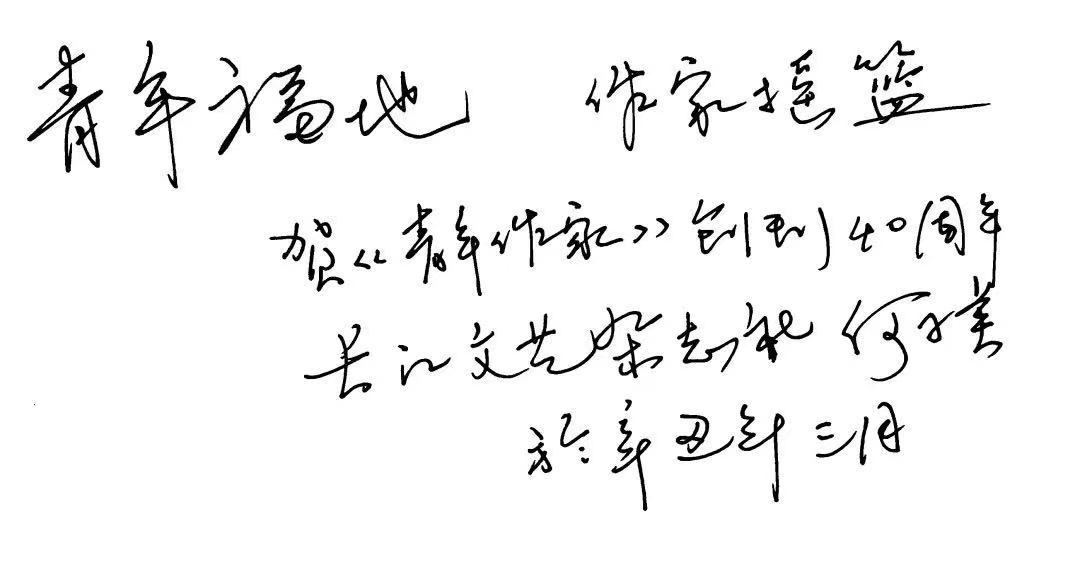 青年福地 作家摇篮
贺《青年作家》创刊40周年
长江文艺杂志社 何子英
於辛丑年三月